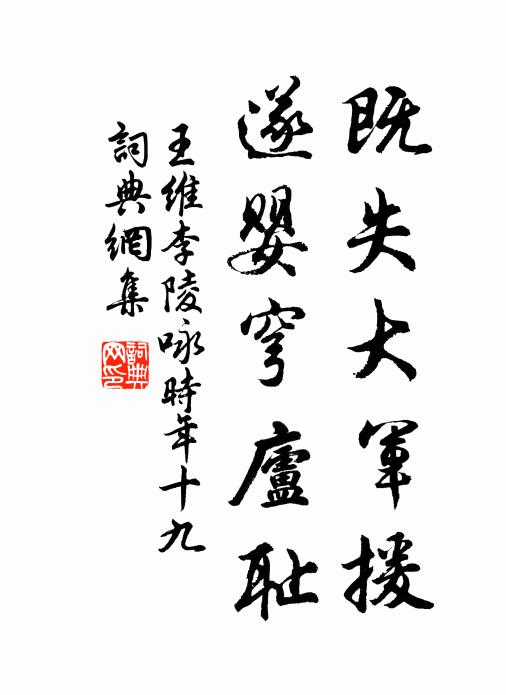 既失大軍援
遂嬰穹廬恥
王維李陵咏時年十九
詞典網集
詞典
网印